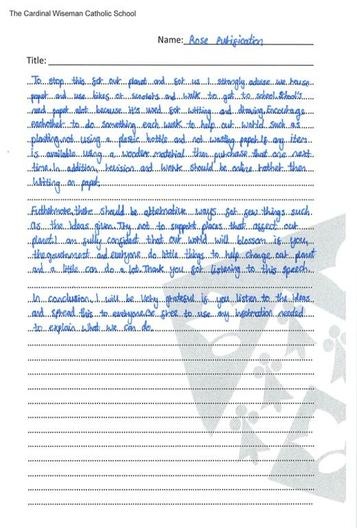 The Cardinal Wiseman Catholic School
Name: Rose
Title:
To stop this for our planet and for us I strongly advise we house
paper and use bikes or scooters and walk to get to school. School's
need paper alot because it's used for writing and drawing. Encourage
eachother to do something each week to help our world such as
planting, not using a plastic bottle and not wasting paper. If any item
is available using a wooden material then purchase that one next
time. In addition, revision and work should be online rather then
writing on paper.
Futhermore, there should be alternative ways for few things such
as the ideas given. Try not to support places that affect our
planet. I am fully confident that our world will blossom if you,
the government and everyone do little things to help change our planet
and a little can do a lot. Thank you for listening to this speech.
In conclusion, I will be very grateful if you listen to the ideas
and spread this to everyone. Be free to use any information needed
to explain what we can do.